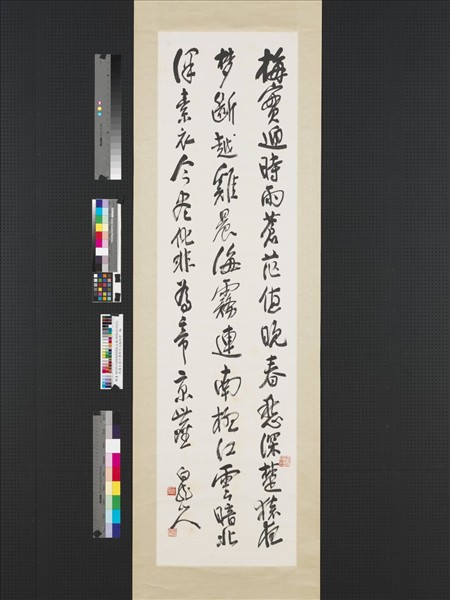 梅實迎時雨蒼茫值晚春愁深楚猿夜
夢斷越雞晨海霧連南極江雲暗北
津素衣今盡化非為帝京塵